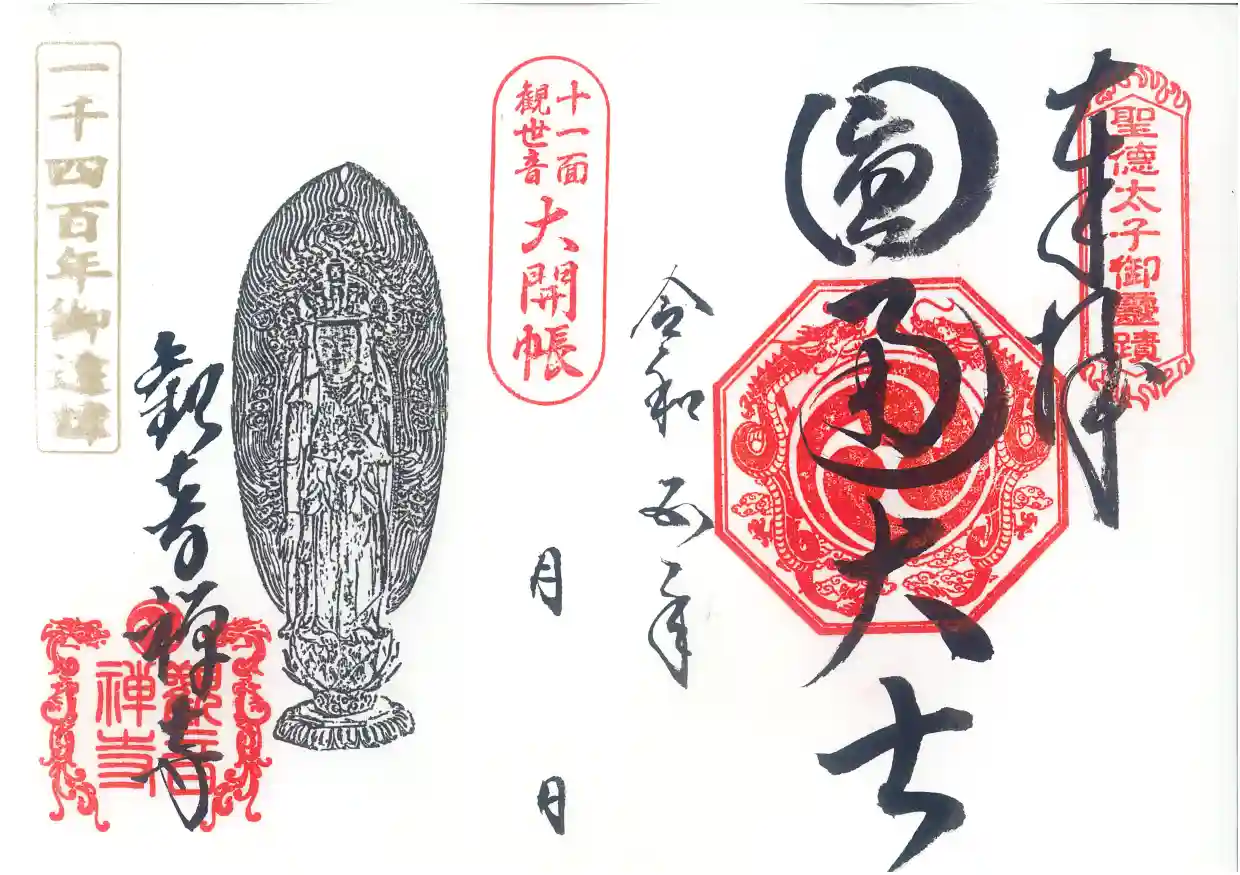 奉拝
聖德太子御靈蹟
圓通大士
令和五年
十一面
觀世音
大開帳
月
日
觀音禅寺
一千四百年御遠諱